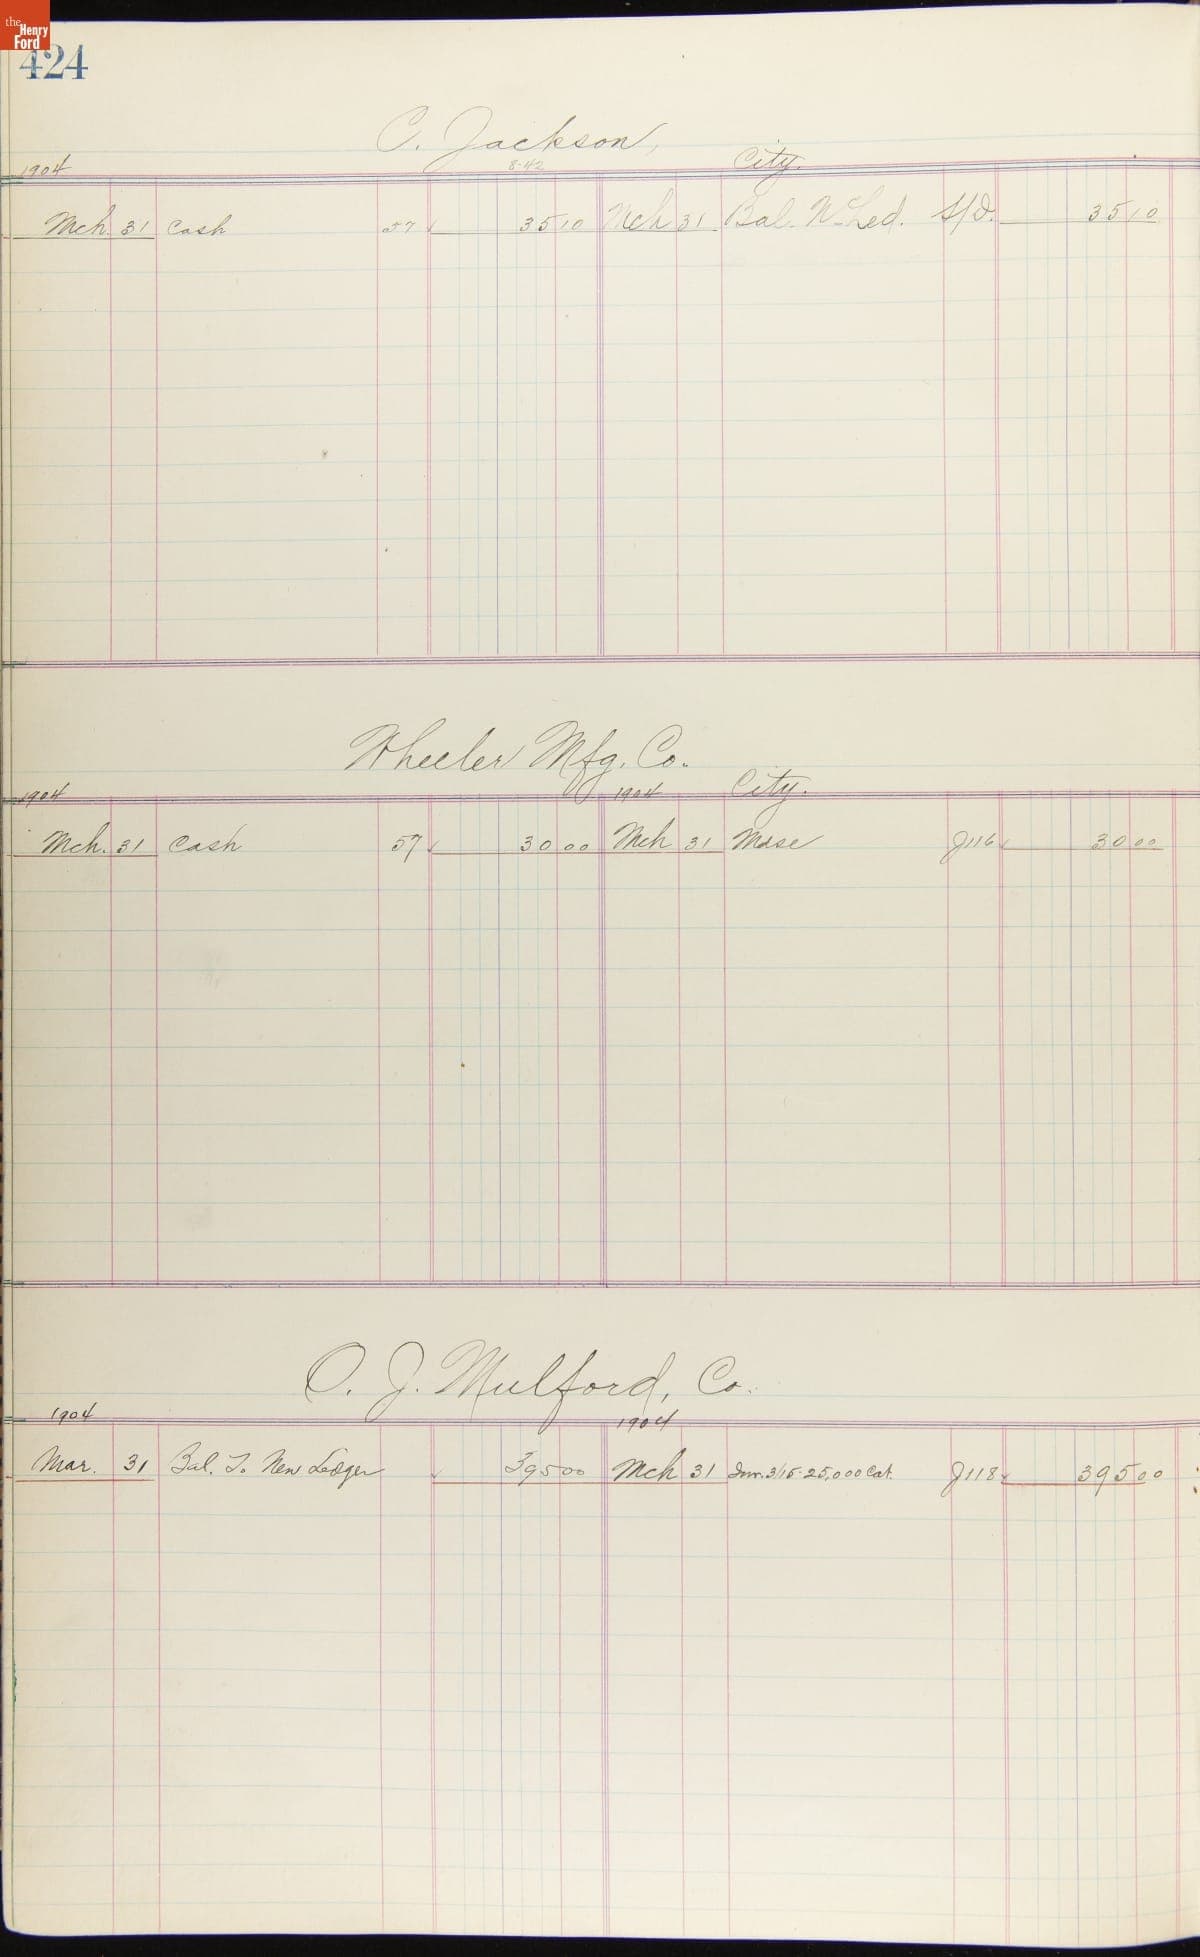 the Henry Ford
424
C. Jackson,
8-42
City.
1904
Mch. 31 Cash 57 ✓ 35 10 Mch 31 Bal. N. Led. S/D. 35 10
Wheeler Mfg. Co.
City.
1904 1904
Mch. 31 Cash 57 ✓ 30 00 Mch 31 Mdse J116 ✓ 30 00
O. J. Mulford, Co.
1904 1904
Mar. 31 Bal. To New Ledger ✓ 395 00 Mch 31 Inv. 3/15-25,000 Cat. J118 ✓ 395 00